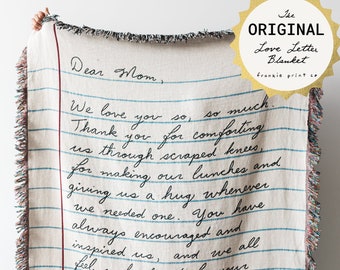 The
ORIGINAL
Love Letter
Blanket
frankie print co
Dear Mom,
We love you so, so much.
Thank you for comforting
us through scraped knees,
for making our lunches and
giving us a hug whenever
we needed one. You have
always encouraged and
inspired us, and we all